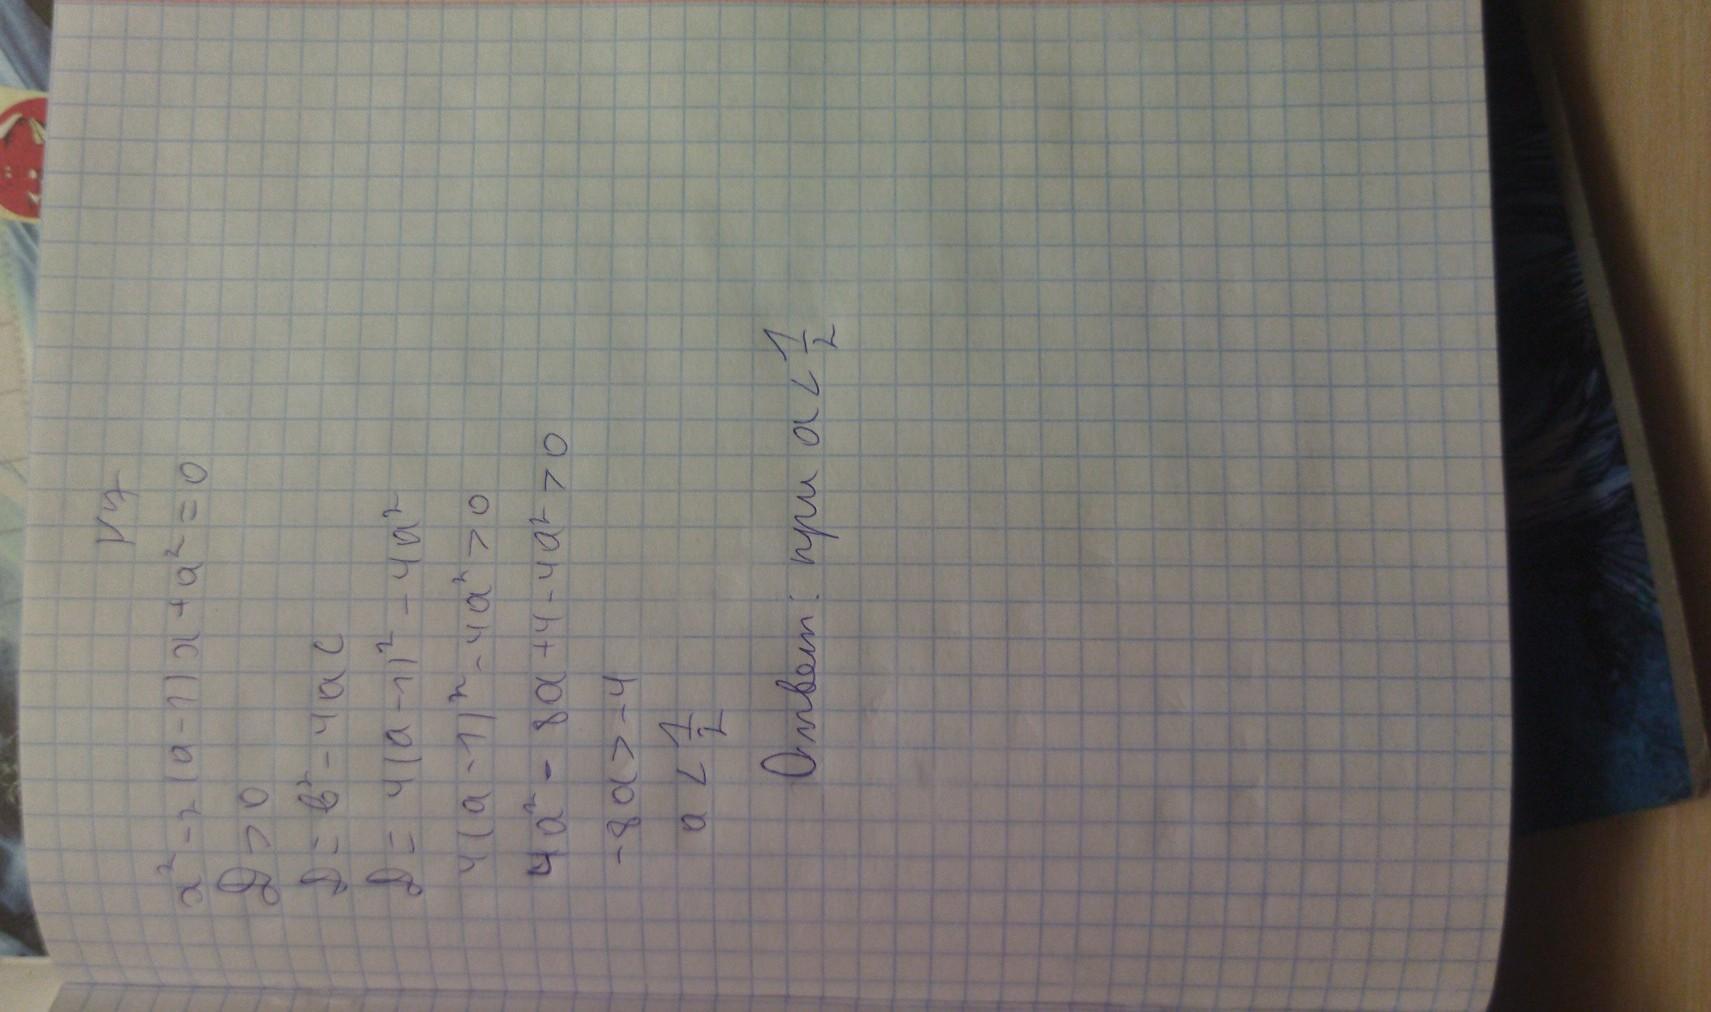 №7
x² - 2(a-1)x + a² = 0
D > 0
D = b² - 4ac
D = 4(a-1)² - 4a²
4(a-1)² - 4a² > 0
4a² - 8a + 4 - 4a² > 0
-8a > -4
a < 1/2
Ответ: при a < 1/2